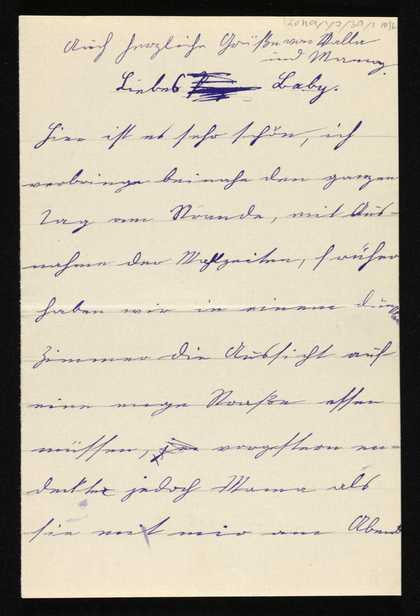 Auch herzliche Grüße von Walla
und Mama.
Liebes Baby.
Hier ist es sehr schön, ich
verbringe beinahe den ganzen
Tag am Strande, mit Aus-
nahme der Mahlzeiten, früher
haben wir in einem
Zimmer die Aussicht auf
eine enge Straße essen
müssen, vorgstern en-
deckte jedoch Mama als
sie mit mir am Abend